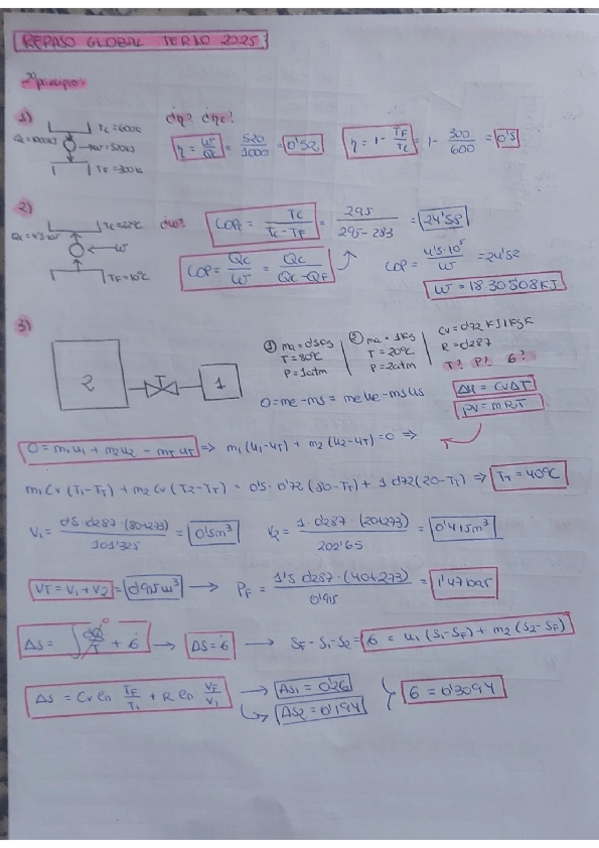 REPASO GLOBAL TERMO 2025:
2º principio:
1)
Tc = 600K
Qc = 1000kJ
W = 520kJ
TF = 300K
¿η? ¿ηc?
η = W/Qc = 520/1000 = 0'52
η = 1 - TF/Tc = 1 - 300/600 = 0'5
2)
Tc = 22ºC
W
TF = 10ºC
¿W?
COPc = Tc/(Tc-TF) = 295/(295-283) = 24'58
COP = Qc/W = Qc/(Qc-QF)
COP = 4'5·10⁵/W = 24'52
W = 18305'08KJ
3)
2
1
① ma = 0'5Kg
T = 80ºC
P = 1atm
② ma = 1Kg
T = 20ºC
P = 2atm
Cv = 0'72 KJ/KgK
R = 0'287
T? P? σ?
0 = me - ms = meue - msus
Δu = CvΔT
PV = mRT
0 = m1u1 + m2u2 - mTuT => m1(u1-uT) + m2(u2-uT) = 0 =>
m1Cv(T1-TT) + m2Cv(T2-TT) = 0'5·0'72(80-TT) + 1·0'72(20-TT) => TT = 40ºC
V1 = 0'5·0'287·(80+273)/101'325 = 0'5m³
V2 = 1·0'287·(20+273)/202'65 = 0'415m³
VT = V1+V2 = 0'915m³ → PF = 1'5·0'287·(40+273)/0'915 = 1'47bar
ΔS = ∫dQ/T⁰ + σ → ΔS = σ → SF-S1-S2 = σ = m1(S1-SF) + m2(S2-SF)
ΔS = Cv ln TF/T1 + R ln VF/V1 → ΔS1 = 0'26
ΔS2 = 0'194
σ = 0'3094